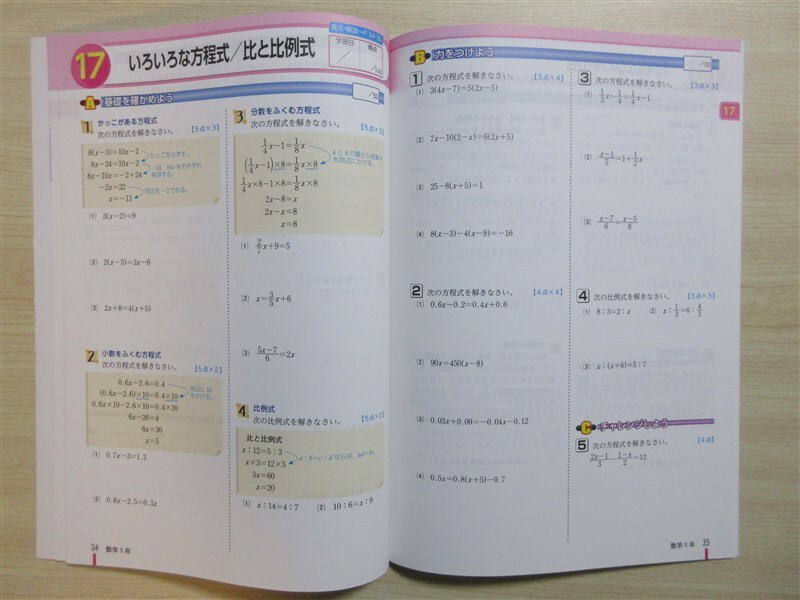 17
いろいろな方程式/比と比例式
要点・解説→P.34・35
学習日
得点
/100
A 基礎を確かめよう
/50
1. かっこがある方程式
次の方程式を解きなさい。 【5点×3】
8(x-3)=10x-2
かっこをはずす。
8x-24=10x-2
8x-10x=-2+24
-2x=22
x=-11
(1) 3(x-2)=9
(2) 2(x-3)=3x-6
(3) 2x+8=4(x+5)
2. 小数をふくむ方程式
次の方程式を解きなさい。 【5点×2】
0.6x-2.6=0.4
(0.6x-2.6)×10=0.4×10
両辺に10をかける。
0.6x×10-2.6×10=0.4×10
6x-26=4
6x=30
x=5
(1) 0.7x-3=1.2
(2) 0.8x-2.5=0.3x
34 数学1年
3. 分数をふくむ方程式
次の方程式を解きなさい。 【5点×3】
1/4x-1=1/8x
(1/4x-1)×8=1/8x×8
1/4x×8-1×8=1/8x×8
2x-8=x
2x-x=8
x=8
(1) 2/7x+9=5
(2) x=3/5x+6
(3) 5x-7/6=2x
4. 比例式
次の比例式を解きなさい。 【5点×2】
比と比例式
x:12=5:3
x×3=12×5
3x=60
x=20
(1) x:14=4:7 (2) 10:6=x:9
B 力をつけよう
/50
1 次の方程式を解きなさい。 【3点×4】
(1) 3(4x-7)=5(2x-5)
(2) 7x-10(2-x)=6(2x+5)
(3) 25-8(x+5)=1
(4) 8(x-3)-4(x-9)=-16
2 次の方程式を解きなさい。 【4点×4】
(1) 0.6x-0.2=0.4x+0.6
(2) 90x=450(x-8)
(3) 0.03x+0.09=-0.04x-0.12
(4) 0.5x=0.8(x+5)-0.7
3 次の方程式を解きなさい。 【3点×3】
(1) 1/3x-1/4=1/4x-1
(2) x-1/5=1+1/2x
(3) x-7/6=x-5/8
4 次の比例式を解きなさい。 【3点×3】
(1) 8:3=2:x (2) x:1/3=6:4/5
(3) x:(x+6)=5:7
C チャレンジしよう
5 次の方程式を解きなさい。 【4点】
2x-1/3-1-x/2=12
17
数学1年 35